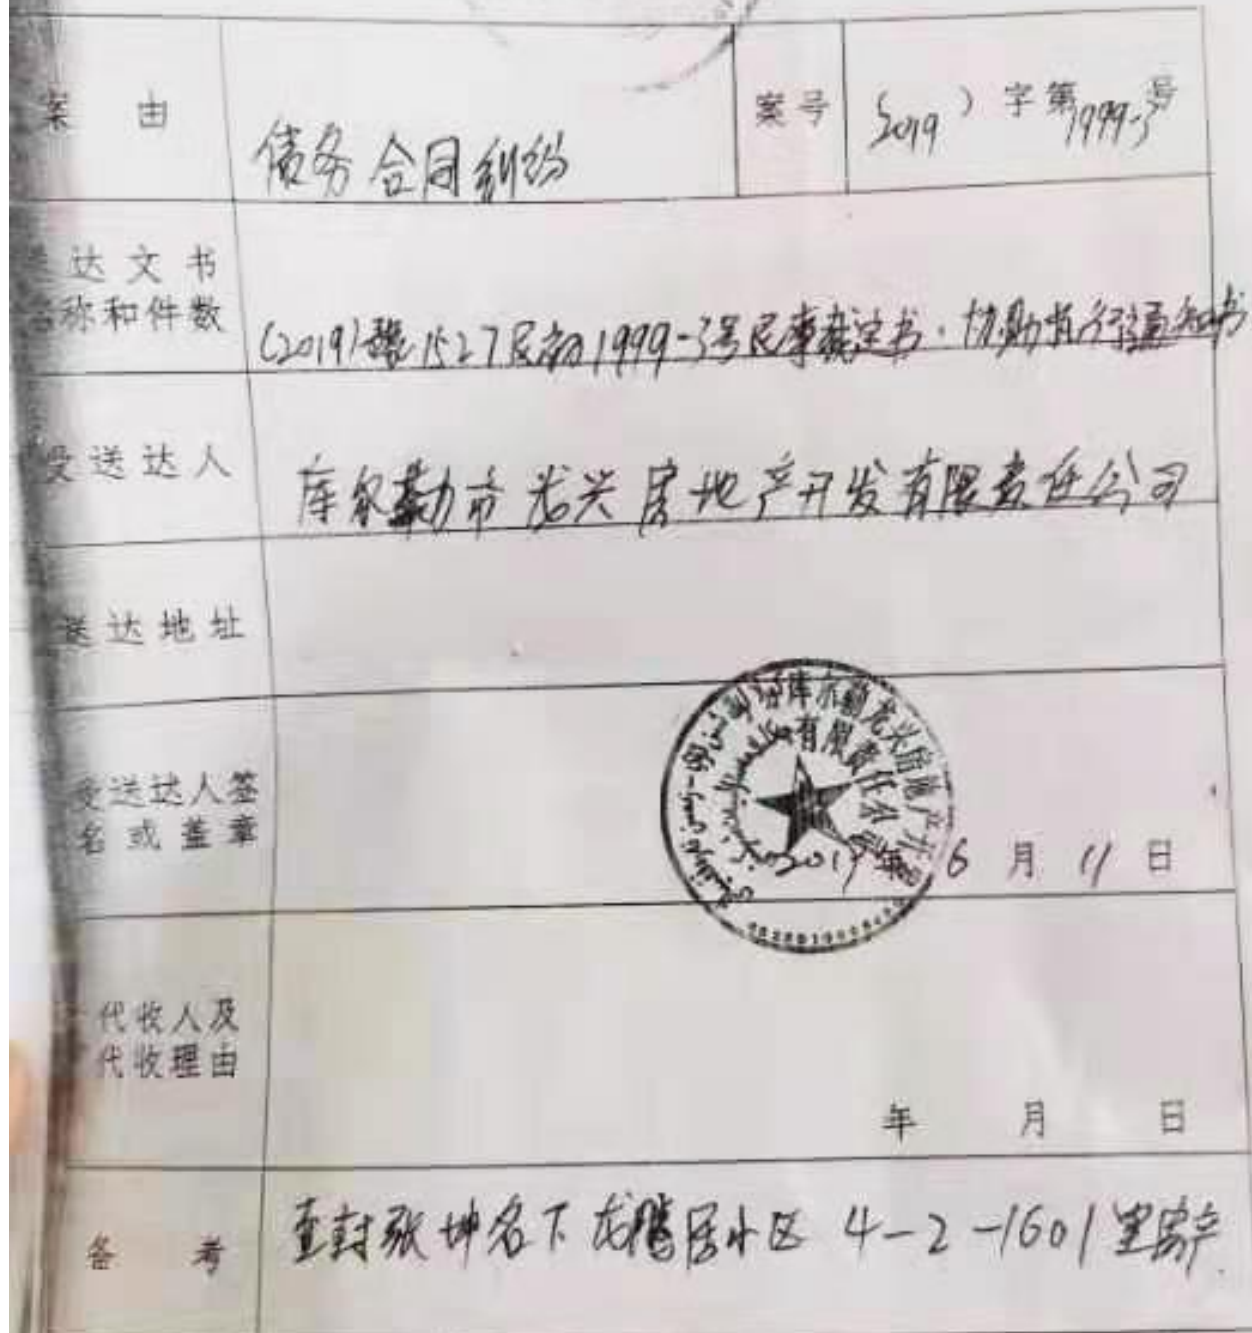 案 由
债务合同纠纷
案号
(2019 ) 字第1999-3号
送达文书
名称和件数
(2019)豫1527民初1999-3号民事裁定书.协助执行通知书
受送达人
库尔勒市龙兴房地产开发有限责任公司
送达地址
受送达人签
名或盖章
库尔勒龙兴房地产开
有限责任公司
2019年 6 月 11 日
代收人及
代收理由
年 月 日
备 考
查封张坤名下龙腾居小区 4-2-1601室房产